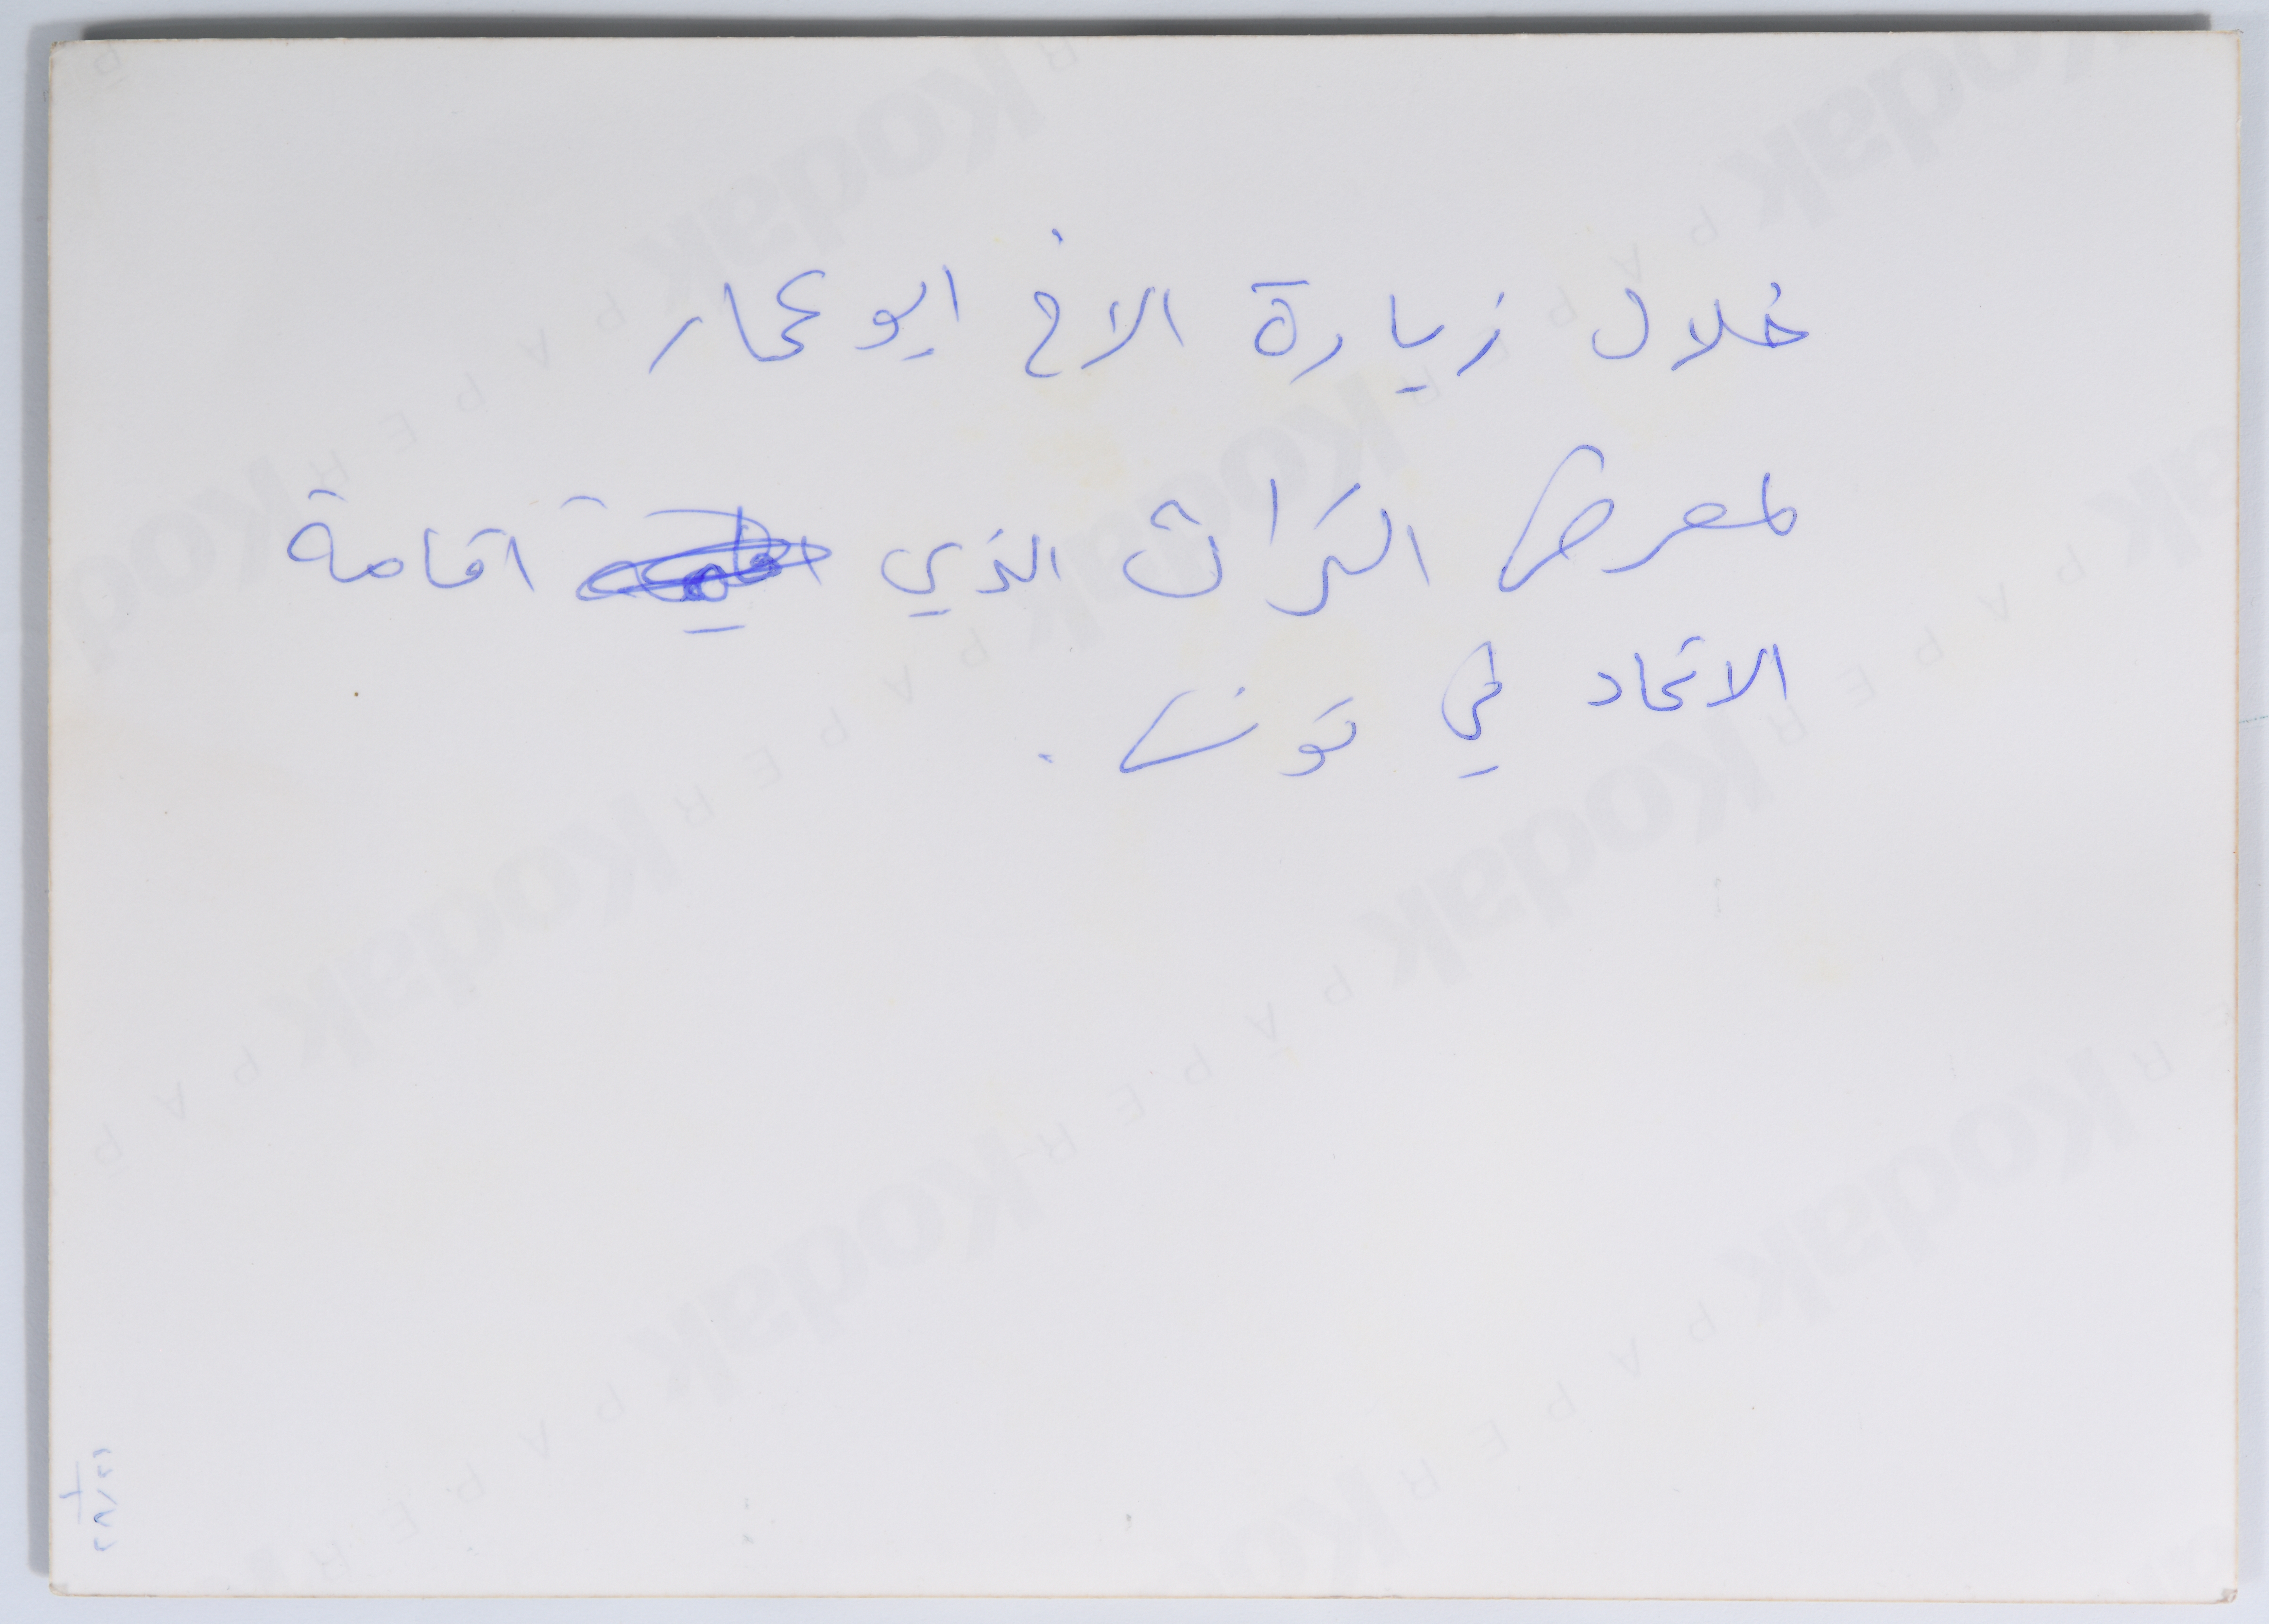 خلال زيارة الاخ ابو عمار
لمعرض التراث الذي اقامة
الاتحاد في تونس .
Kodak PAPER